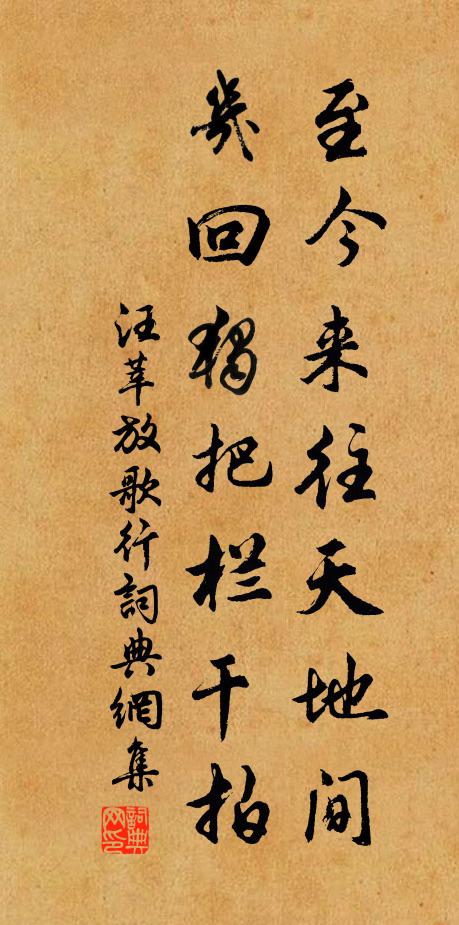 至今来往天地间
几回独把栏干拍
汪莘放歌行詞典網集
詞典网印